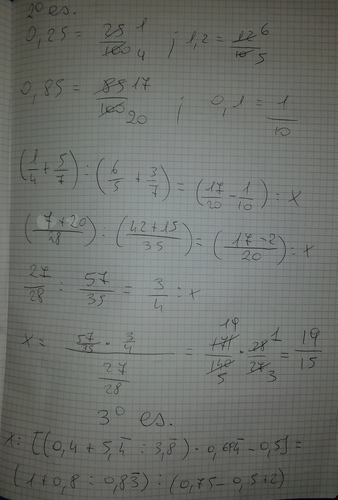 2º es.
0,25 = 25 1/100 4 ; 1,2 = 12 6/10 5
0,85 = 85 17/100 20 ; 0,1 = 1/10
(1/4 + 5/7) : (6/5 + 3/7) = (17/20 - 1/10) : x
(7+20/28) : (42+15/35) = (17-2/20) : x
27/28 : 57/35 = 3/4 : x
x = 57/35 · 3/4 / 27/28 = 19 171/140 5 · 28 1/27 3 = 19/15
3º es.
x : [(0,4 + 5,4̄ : 3,8̄) · 0,694̄ - 0,5] =
(1+0,8 : 0,83̄) : (0,75 - 0,5+2)